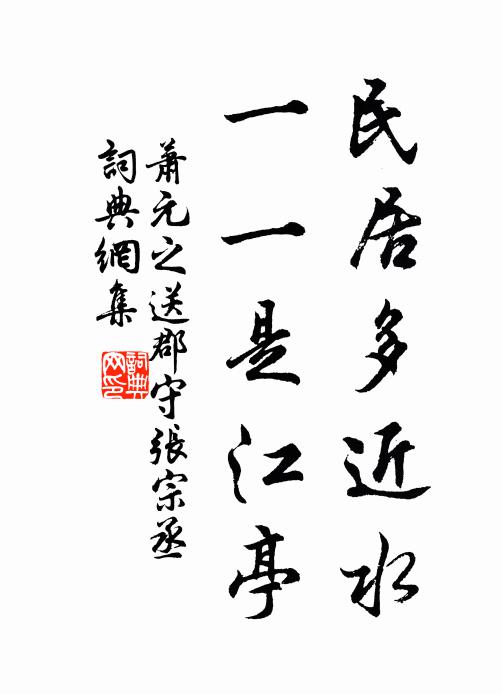 民居多近水
一一是江亭
蕭元之送郡守張宗丞
詞典網集
詞典
网印